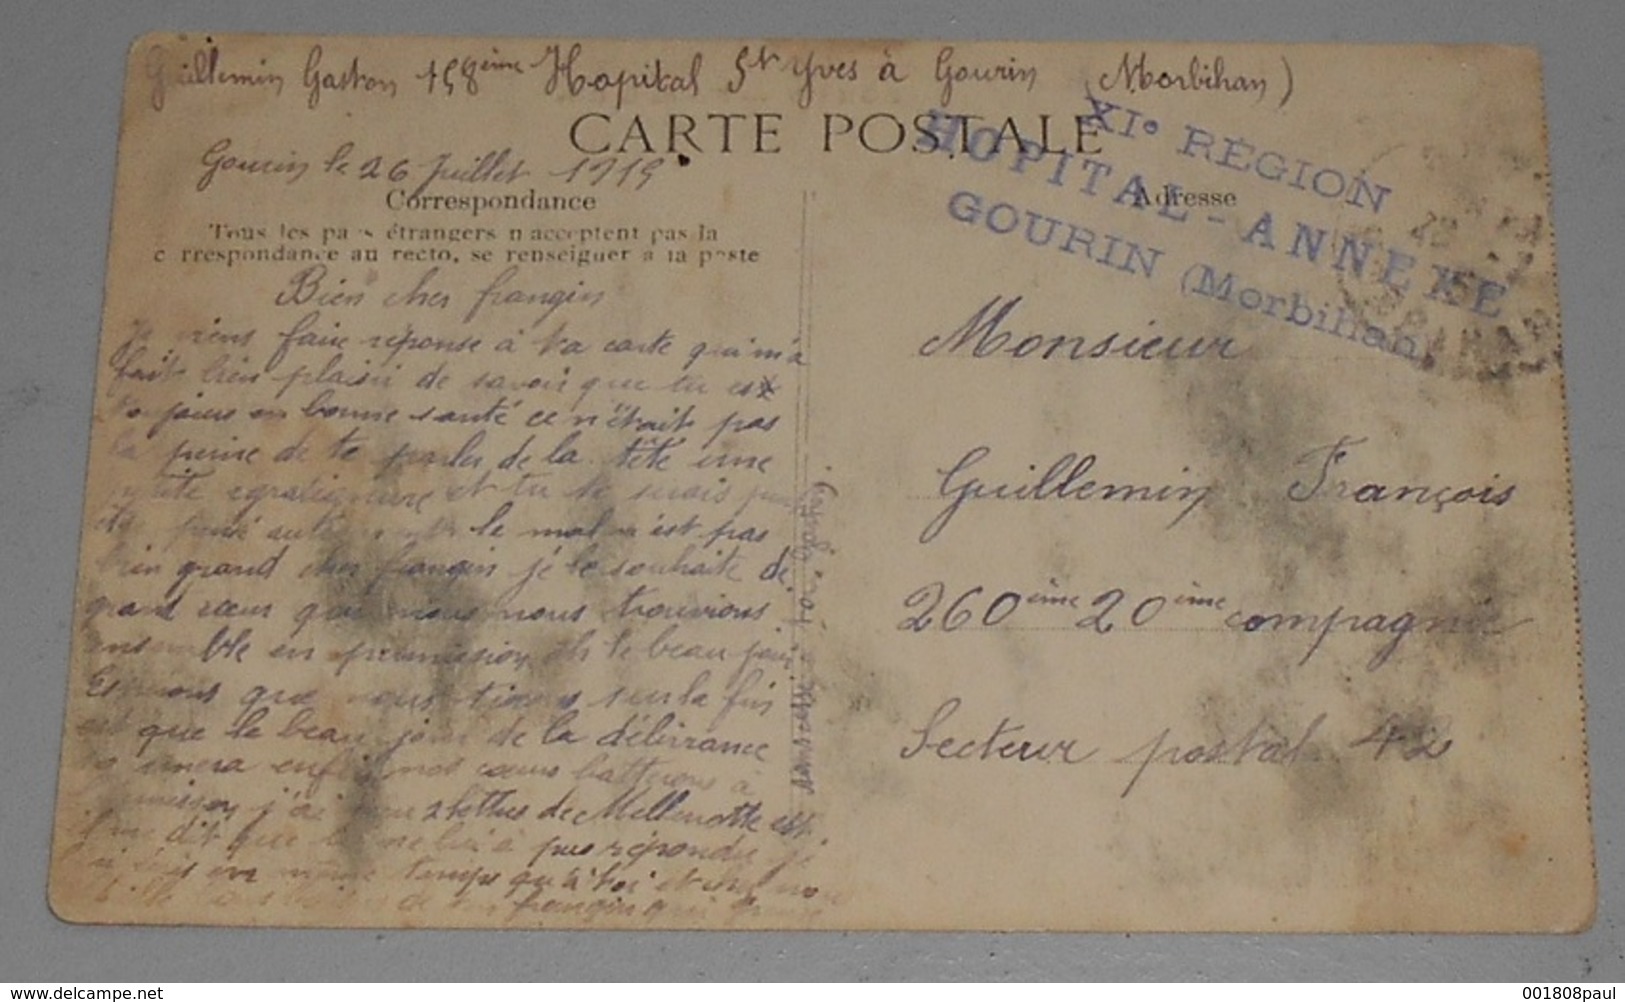 Guillemin Gaston 158ème Hopital St Yves à Gourin (Morbihan)
CARTE POSTALE
XIe REGION
HOPITAL-ANNEXE
GOURIN (Morbihan)
Gourin le 26 Juillet 1915
Correspondance
Adresse
Tous les pays étrangers n'acceptent pas la
correspondance au recto, se renseigner à la poste
Bien cher frangin
Je viens faire réponse à ta carte qui m'a
fait bien plaisir de savoir que tu est
toujours en bonne santé ce n'était pas
la peine de te parler de la tête une
petite egratignure et tu le
le mal n'est pas
bien grand cher frangin je le souhaite de
grand cœur que nous nous trouvions
ensemble en permission oh le beau jour
Esperons que nous tirons sur la fin
est que le beau jour de la délivrance
enfin nos cœurs batterons à
j'ai 2 lettres de Mellenotte est
il me dit que tu ne lui à pas répondu je
lui en même temps qu'à toi et
de ton frangin qui
Monsieur
Guillemin François
260ème 20ème compagnie
Secteur postal 42
001808paul
www.delcampe.net